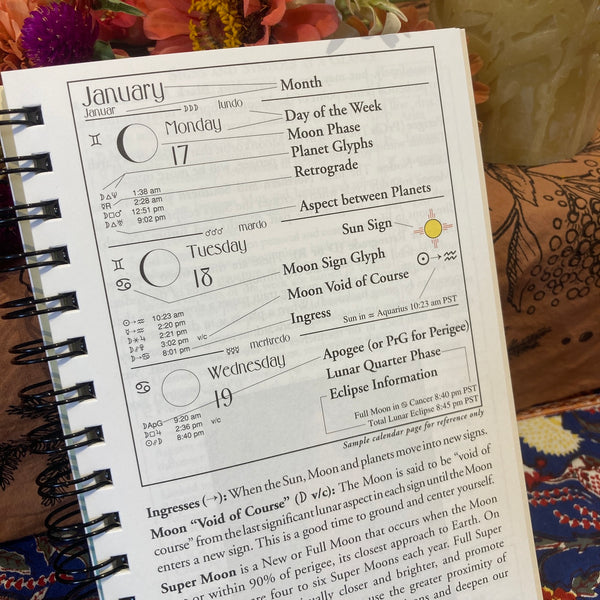 January
Month
Januar
☽☽☽ lundo
Day of the Week
♊
Monday
Moon Phase
17
Planet Glyphs
Retrograde
☽△♅ 1:38 am
☿℞ 2:28 am
☽□♂ 12:51 pm
9:02 pm
Aspect between Planets
♂♂♂ mardo
Sun Sign
♊
Tuesday
18
♋
Moon Sign Glyph
☉→♒
Moon Void of Course
☉→♒ 10:23 am
2:20 pm
☽✶♃ 2:21 pm
3:02 pm v/c
☽→♋ 8:01 pm
Ingress
Sun in ♒ Aquarius 10:23 am PST
☿☿☿ merkredo
♋
Wednesday
19
Apogee (or PrG for Perigee)
Lunar Quarter Phase
Eclipse Information
☽ApG 9:20 am
☽□♃ 2:36 pm v/c
☉☍☽ 8:40 pm
Full Moon in ♋ Cancer 8:40 pm PST
Total Lunar Eclipse 8:45 pm PST
Sample calendar page for reference only
Ingresses (→): When the Sun, Moon and planets move into new signs.
Moon “Void of Course” (☽ v/c): The Moon is said to be “void of
course” from the last significant lunar aspect in each sign until the Moon
enters a new sign. This is a good time to ground and center yourself.
Super Moon is a New or Full Moon that occurs when the Moon
or within 90% of perigee, its closest approach to Earth. On
are four to six Super Moons each year. Full Super
closer and brighter, and promote
use the greater proximity of
and deepen our